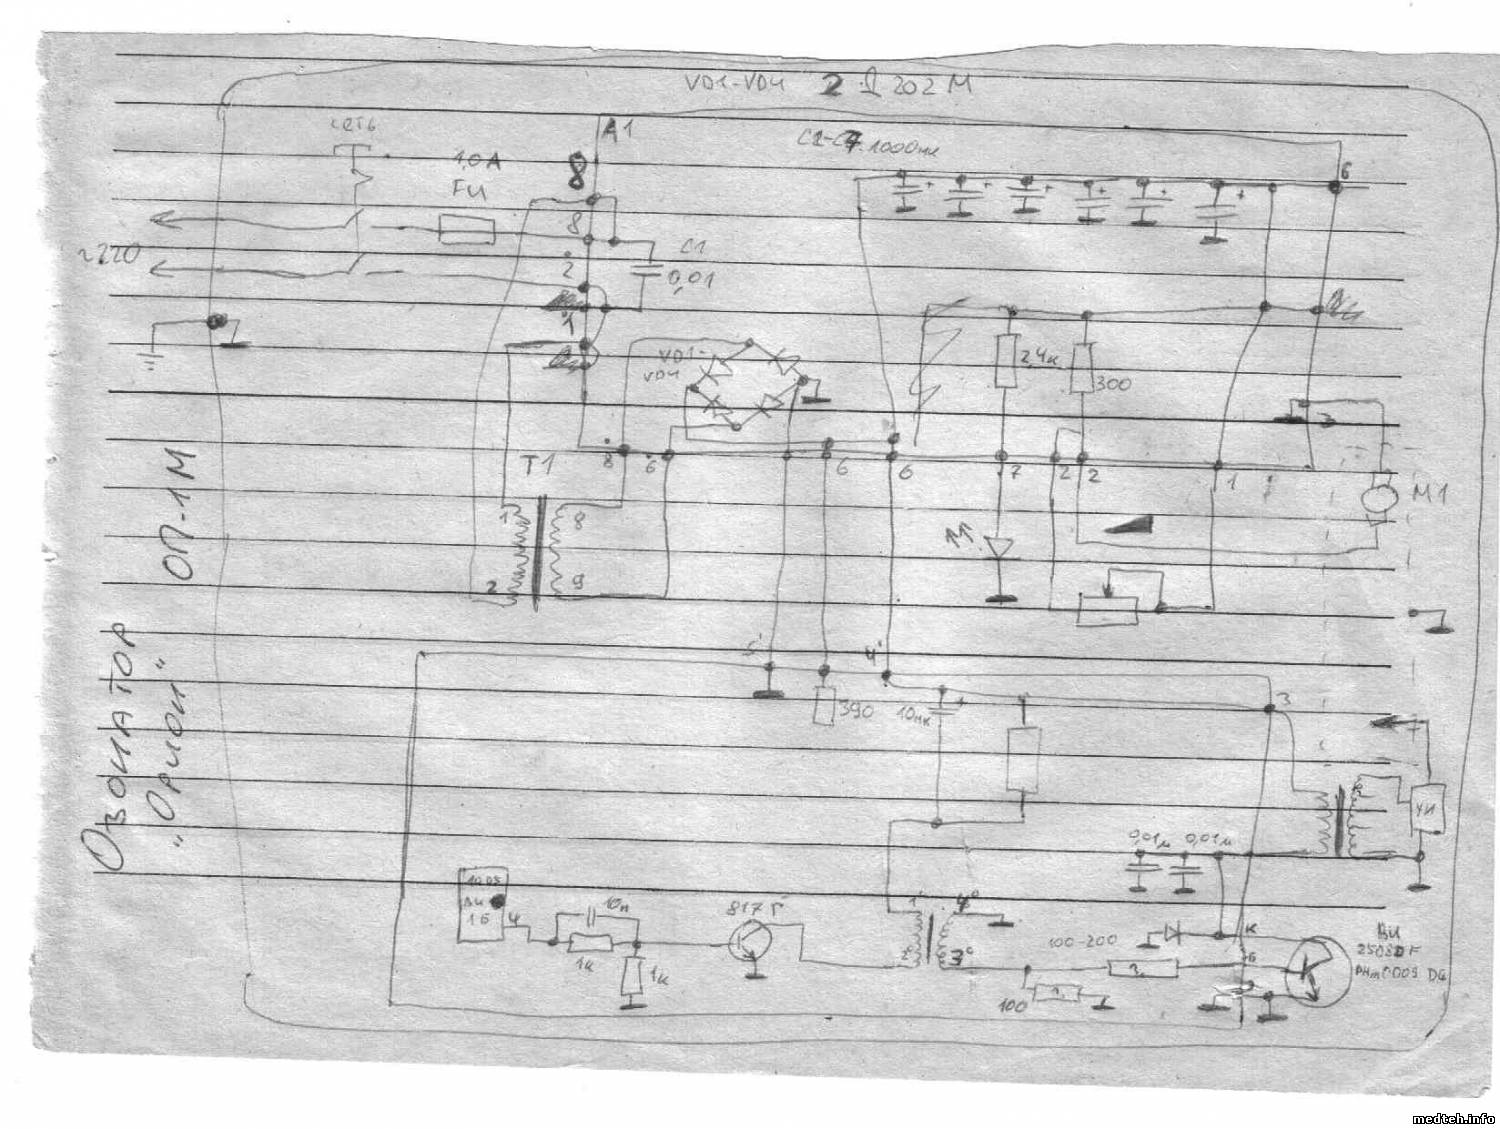 VD1-VD4 2Д202М
СЕТЬ
А1
С1-С7 1000мк
1,0А
FU
8
6
+ + + + + +
8
~220
2
С1
0,01
1
VD1-
VD4
2,4к
300
ОП-1М
Т1
8 6 6 6 7 2 2 1
М1
1 8
2 9
Озонатор
"Орион"
5' 4'
390 10мк +
3
УИ
0,01м 0,01м
4
10н
817Г
1' 4°
2° 3°
1к
1к
100-200
К
Б
100
BU
2508DF